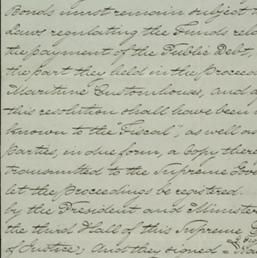 Bonds must remain subject t
Laws regulating the Funds rela
the payment of the Public Debt,
the part they held in the Proceed
Maritime Customhouses, and a
this resolution shall have been
known to the "Fiscal", as well as
parties, in due form, a copy there
transmitted to the Supreme Gov
let the Proceedings be registered.
by the President and Minister
the third Hall of this Supreme
of Justice; And they signed =